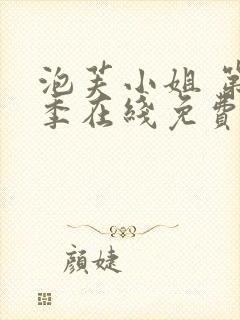 泡芙小姐 第
季在綫免費
顏婕